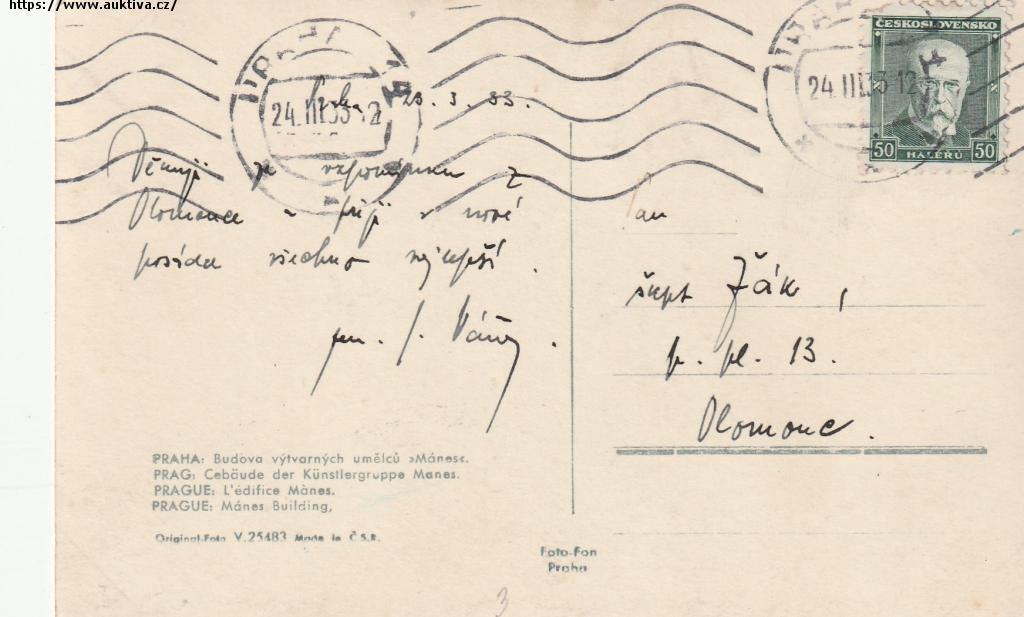 https://www.auktiva.cz/
PRAHA
24.III.33-12
24.III.33-12
ČESKOSLOVENSKO
50 HALÉŘŮ 50
Praha 23. 3. 33.
Děkuji za vzpomínku z
Olomouce a přiji v nové
posádce všechno nejlepší.
gen. J. Váňa.
Pan
škpt Žák,
p. pl. 13.
Olomouc.
PRAHA: Budova výtvarných umělců »Mánes«.
PRAG: Gebäude der Künstlergruppe Manes.
PRAGUE: L'édifice Mànes.
PRAGUE: Mánes Building,
Original-Foto V.25483 Made in Č.S.R.
Foto-Fon
Praha
3